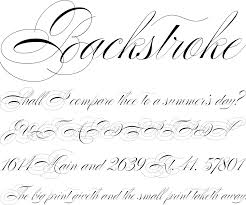 Backstroke
Shall I compare thee to a summer's day?
1614 Main and 2639 St. 11. 57801
The big print giveth and the small print taketh away.